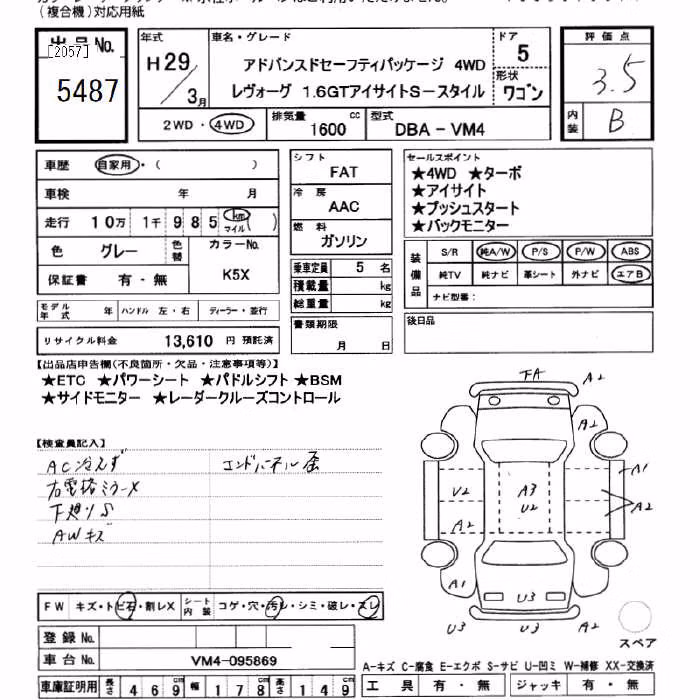 (複合機)対応用紙
出品No.
[2057]
5487
年式
H29/3月
車名・グレード
アドバンスドセーフティパッケージ 4WD
レヴォーグ 1.6GTアイサイトS-スタイル
ドア
5
形状
ワゴン
2WD・4WD
排気量 1600 cc
型式 DBA-VM4
評価点
3.5
内装 B
車歴 自家用・( )
車検 年 月
走行 10万 1千 985 km マイル( )
色 グレー 色替
カラーNo.
K5X
保証書 有・無
モデル年式 年 ハンドル 左・右 ディーラー・並行
リサイクル料金 13,610 円 預託済
シフト
FAT
冷房
AAC
燃料
ガソリン
乗車定員 5 名
積載量 kg
総重量 kg
書類期限
月 日
セールスポイント
★4WD ★ターボ
★アイサイト
★プッシュスタート
★バックモニター
装備品
S/R 純A/W P/S P/W ABS
純TV 純ナビ 革シート 外ナビ エアB
ナビ型番:
後日品
【出品店申告欄(不良箇所・欠品・注意事項等)】
★ETC ★パワーシート ★パドルシフト ★BSM
★サイドモニター ★レーダークルーズコントロール
【検査員記入】
AC冷えず
エンドパネル歪
右電格ミラーX
下廻りS
AWキズ
FA A2
A2
A1
V2 A3 U2
A2
A2
A1
U3
U3 A2
U3
スペア
FW キズ・トビ石・割レX
シート内装 コゲ・穴・汚レ・シミ・破レ・スレ
登録No.
車台No. VM4-095869
車庫証明用 長さ 469cm 幅 178cm 高さ 149cm
A-キズ C-腐食 E-エクボ S-サビ U-凹ミ W-補修 XX-交換済
工具 有・無 ジャッキ 有・無